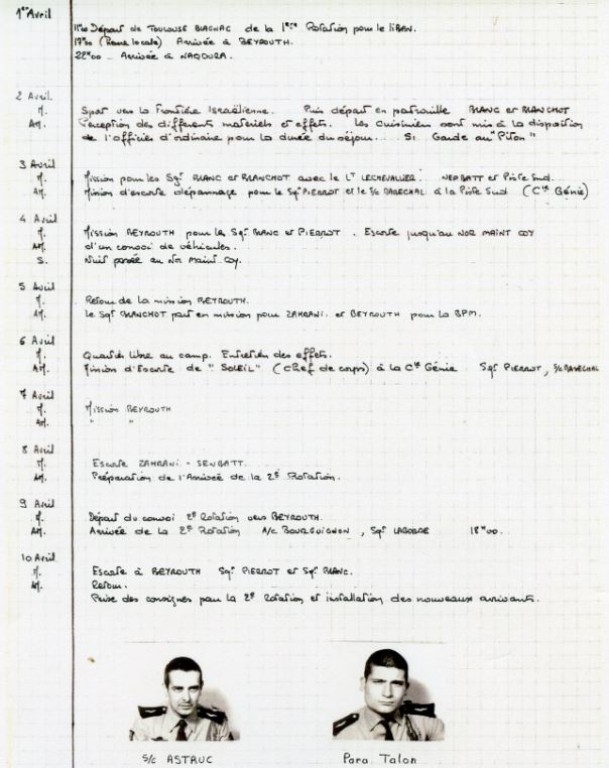 1er Avril
11h30 Départ de TOULOUSE BLAGNAC de la 1ère Rotation pour le LIBAN.
17h30 (heure locale) Arrivée à BEYROUTH.
22h00 Arrivée à NAQOURA.
2 Avril.
M. Sport vers la Frontière Israélienne. Puis départ en patrouille BLANC et BLANCHOT
AM. Perception des différents matériels et effets. Les cuisiniers sont mis à la disposition
de l'officier d'ordinaire pour la durée du séjour.... S: Garde au "Piton"
3 Avril
M. Mission pour les Sgt BLANC et BLANCHOT avec le Lt LECHEVALLIER: NEPBATT et Piste Sud.
AM. Mission d'escorte dépannage pour le Sgt PIERROT et le S/C MARECHAL à la Piste Sud (Cie Génie)
4 Avril
M. Mission BEYROUTH pour les Sgt BLANC et PIERROT. Escorte jusqu'au NOR MAINT COY
AM. d'un convoi de véhicules.
S. Nuit passée au Nor Maint. Coy.
5 Avril
M. Retour de la mission BEYROUTH.
AM. Le Sgt BLANCHOT part en mission pour ZAHRANI. et BEYROUTH pour la BPM.
6 Avril
M. Quartier libre au camp. Entretien des effets.
AM. Mission d'Escorte de "SOLEIL" (Chef de corps) à la Cie Génie Sgt PIERROT, S/C MARECHAL
7 Avril
M. Mission BEYROUTH
AM. " "
8 Avril
M. Escorte ZAHRANI - SENBATT.
AM. Préparation de l'Arrivée de la 2e Rotation.
9 Avril
M. Départ du convoi 2e Rotation vers BEYROUTH.
AM. Arrivée de la 2e Rotation A/C BOURGUIGNON, Sgt LABORDE 18h00.
10 Avril
M. Escorte à BEYROUTH Sgt PIERROT et Sgt BLANC.
AM. Retour.
Prise des consignes pour la 2e Rotation et installation des nouveaux arrivants.
S/C ASTRUC
Para. Talon